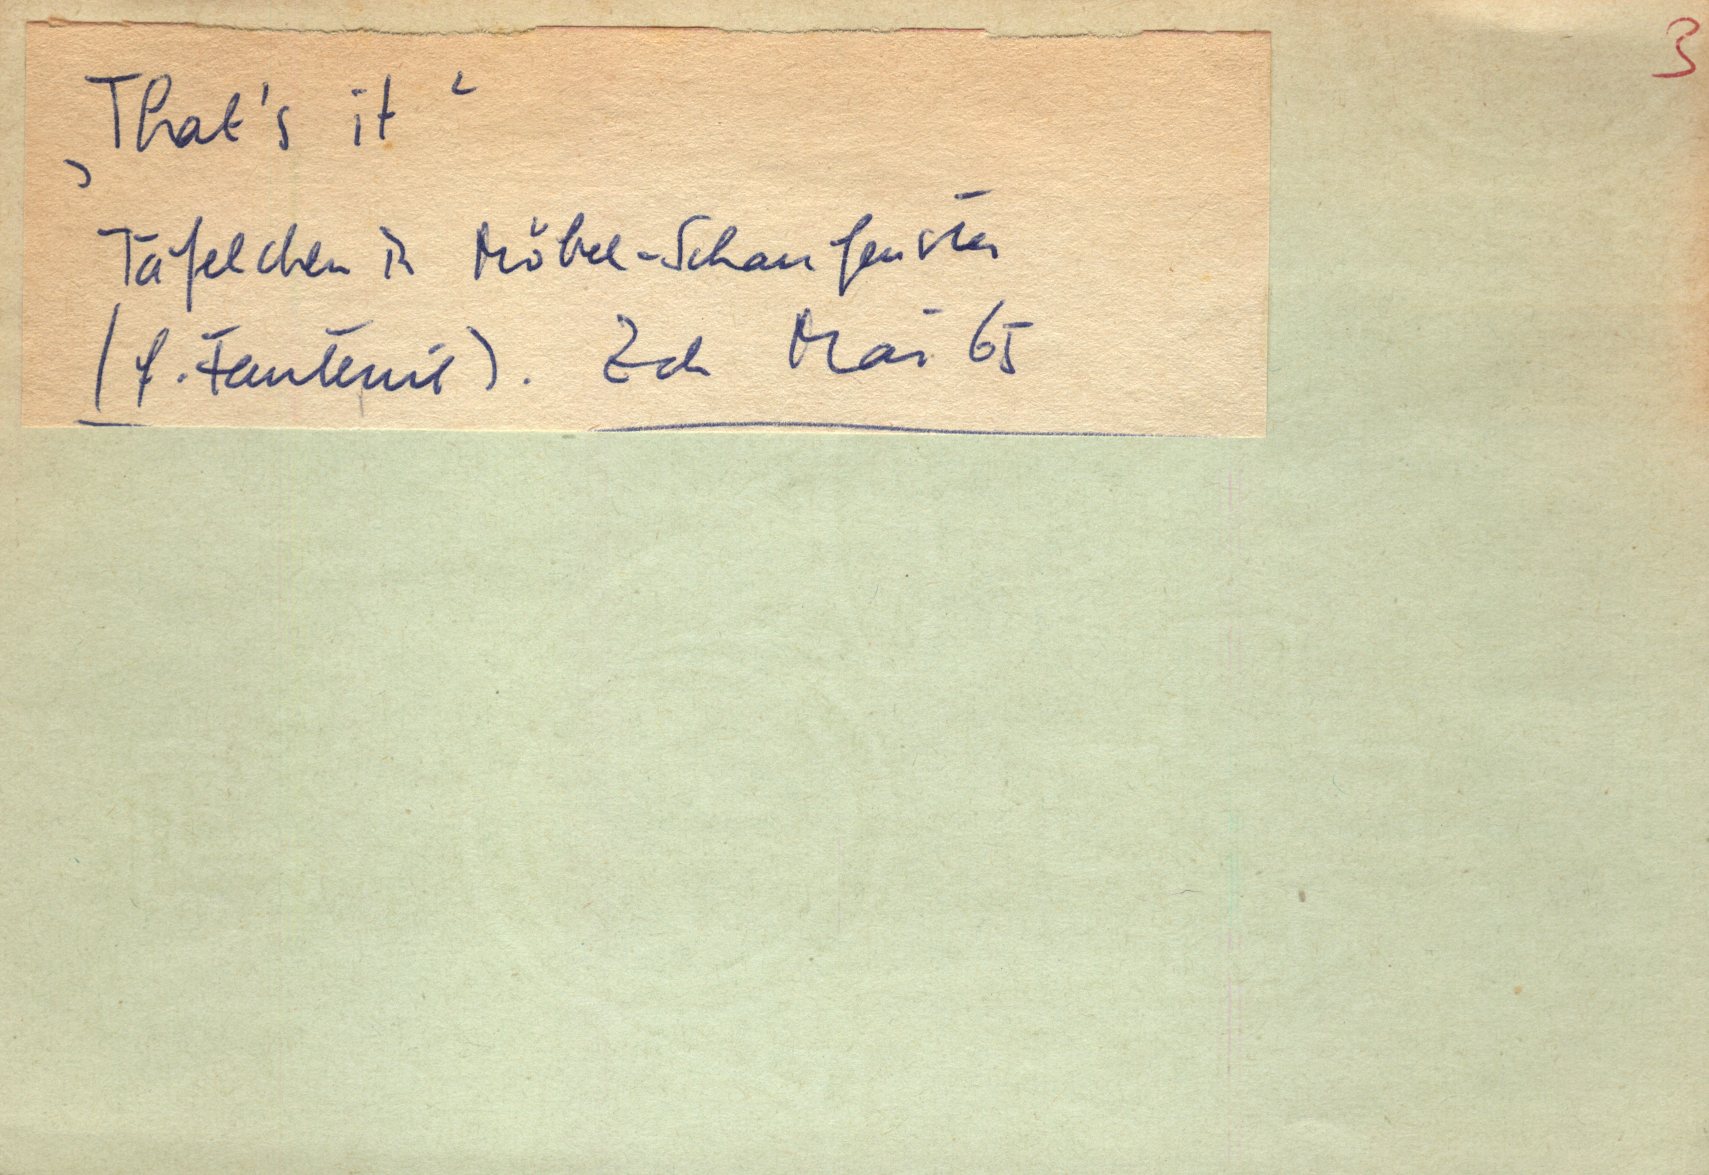 3
„That's it“
Täfelchen in Möbel-Schaufenster
(f. Fauteuil). Zch Mai 65